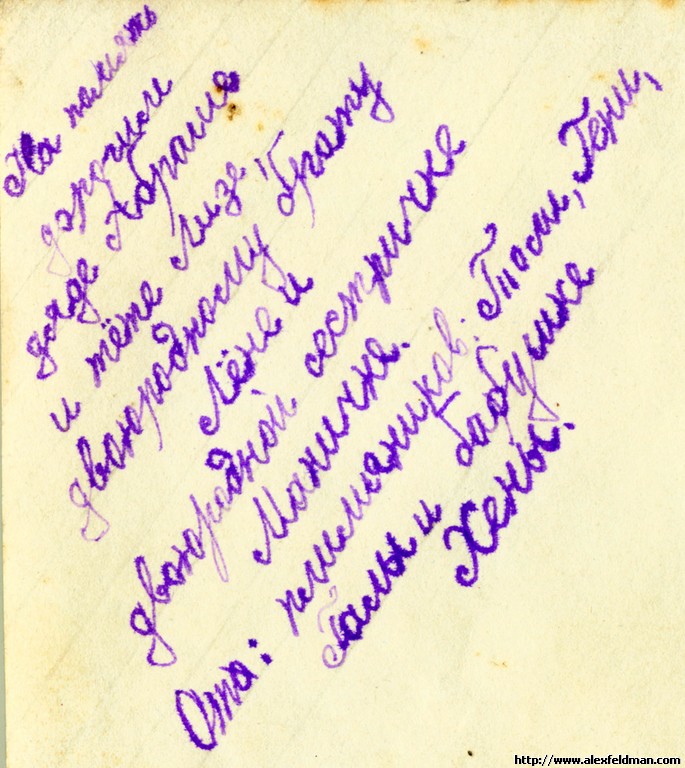 На память
дорогим
дяде Абраше
и тёте Лизе,
двоюродному брату
Лёне и
двоюродной сестричке
Маничке.
Ота: племяников: Тоси, Гени,
Галы и бабушке
Хены.
http://www.alexfeldman.com